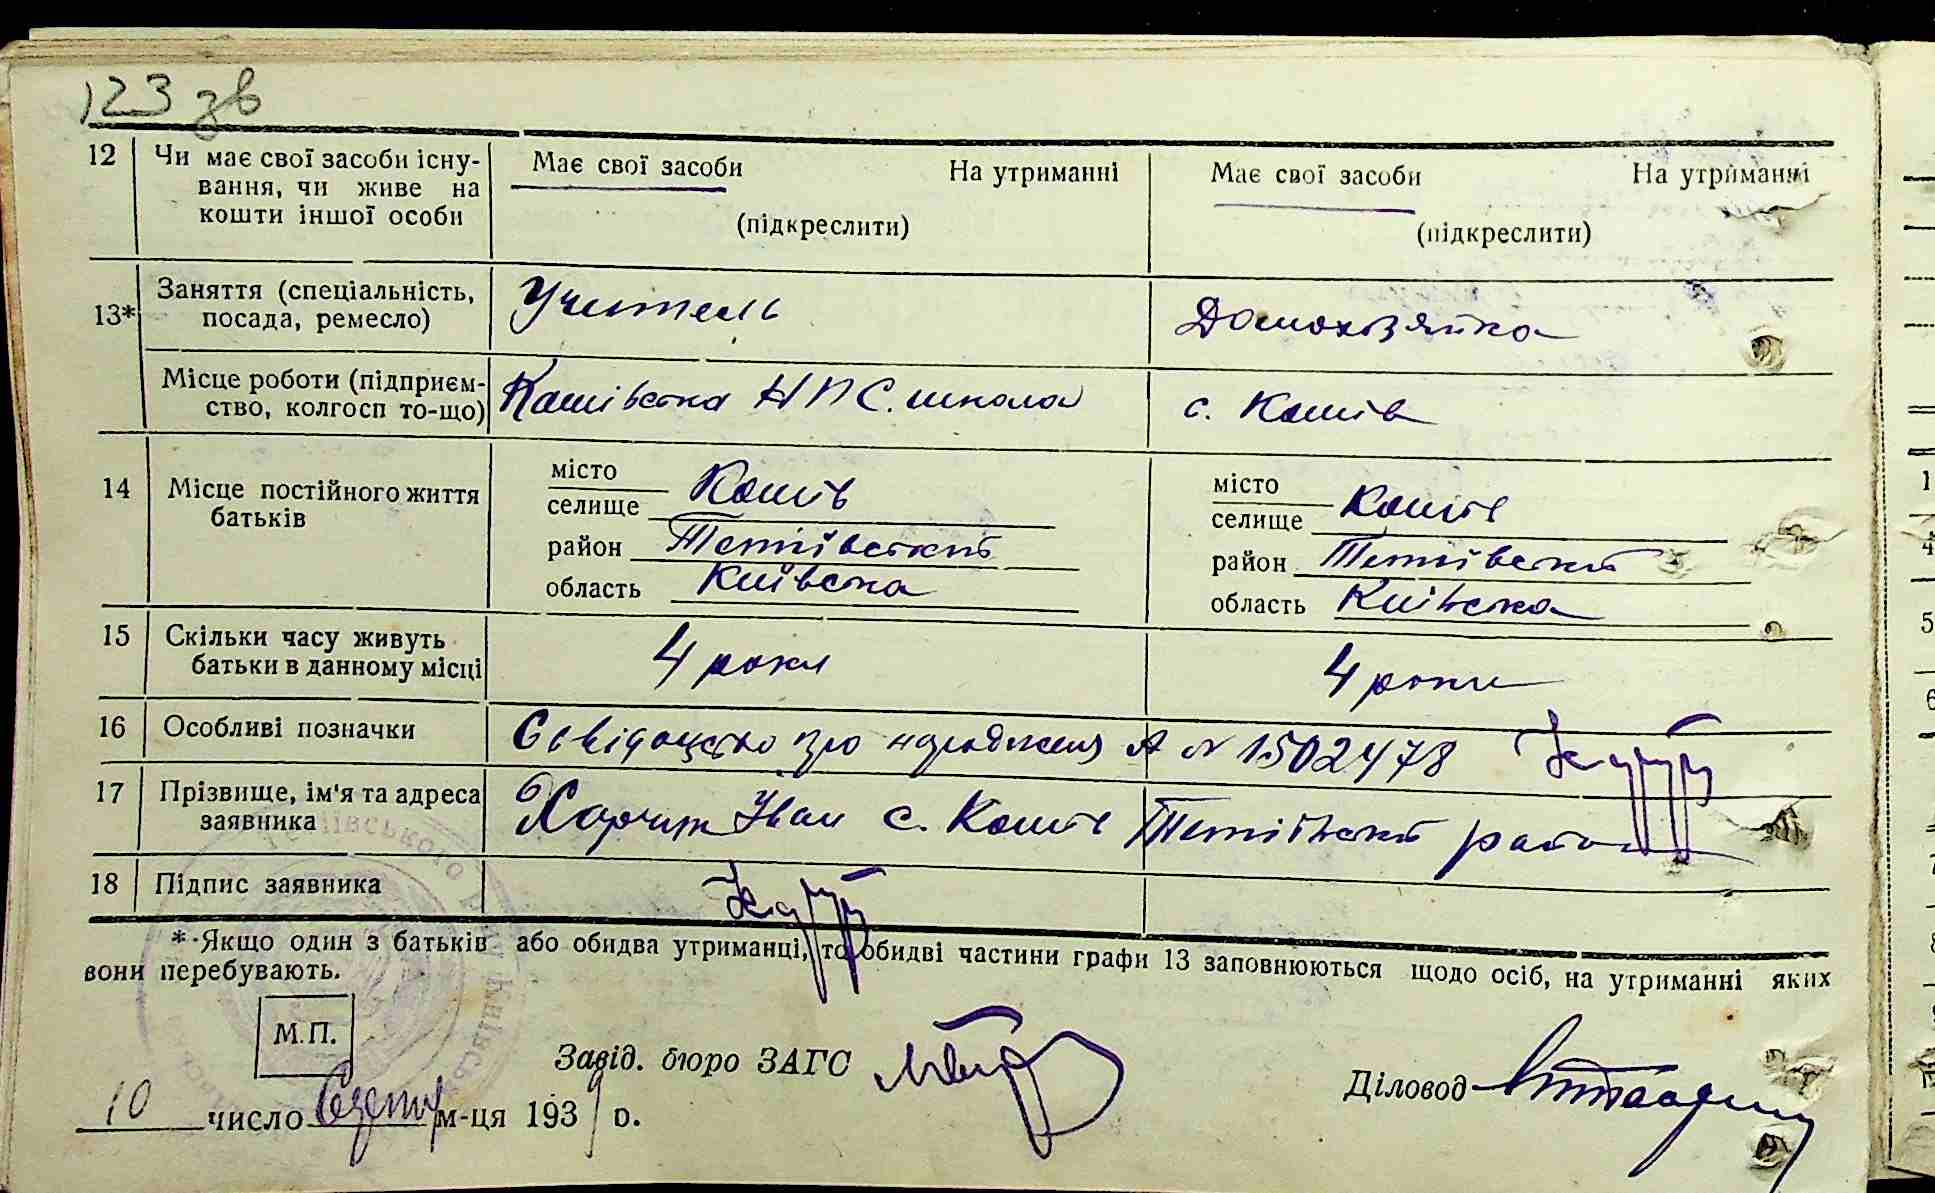 123 зв
12 Чи має свої засоби існу- Має свої засоби На утриманні Має свої засоби На утриманні
вання, чи живе на
кошти іншої особи (підкреслити) (підкреслити)
13* Заняття (спеціальність, Учитель Домохазяйка
посада, ремесло)
Місце роботи (підприєм- Кашівська НПС. школа с. Кашів
ство, колгосп то-що)
14 Місце постійного життя місто Кашів місто Кашів
батьків селище селище
район Тетіївський район Тетіївський
область Київська область Київська
15 Скільки часу живуть 4 роки 4 роки
батьки в данному місці
16 Особливі позначки Свідоцтво про народження А № 1502478
17 Прізвище, ім'я та адреса Іван с. Кашів Тетіївський район
заявника
18 Підпис заявника
* Якщо один з батьків або обидва утриманці, то обидві частини графи 13 заповнюються щодо осіб, на утриманні яких
вони перебувають.
М.П.
Завід. бюро ЗАГС Діловод
10 число м-ця 1939 р.